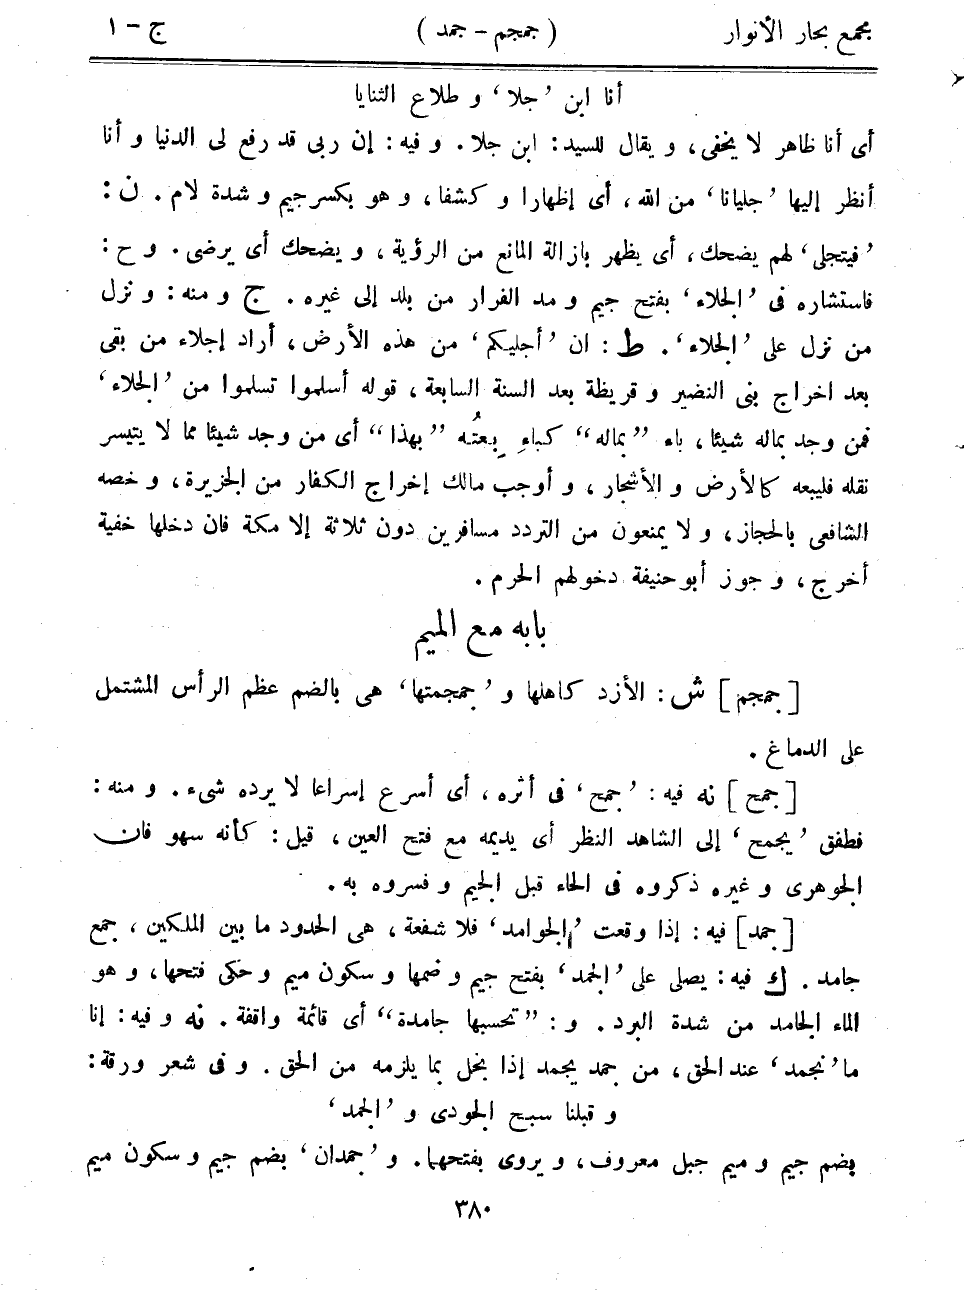 مجمع بحار الأنوار ( جمجم - جمد ) ج - ١
أنا ابن ’جلا‘ و طلاع الثنايا
أى أنا ظاهر لا يخفى، و يقال للسيد: ابن جلا. و فيه: إن ربى قد رفع لى الدنيا و أنا
أنظر إليها ’جليانا‘ من الله، أى إظهارا و كشفا، و هو بكسر جيم و شدة لام. ن:
’فيتجلى‘ لهم يضحك، أى يظهر بازالة المانع من الرؤية، و يضحك أى يرضى. و ح:
فاستشاره فى ’الجلاء‘ بفتح جيم و مد الفرار من بلد إلى غيره. ج و منه: و نزل
من نزل على ’الجلاء‘. ط: ان ’أجليكم‘ من هذه الأرض، أراد إجلاء من بقى
بعد اخراج بنى النضير و قريظة بعد السنة السابعة، قوله أسلموا تسلموا من ’الجلاء‘
فمن وجد بماله شيئا، باء ”بماله“ كباءِ بِعتُه ”بهذا“ أى من وجد شيئا مما لا يتيسر
نقله فليبعه كالأرض و الأشجار، و أوجب مالك إخراج الكفار من الجزيرة، و خصه
الشافعى بالحجاز، و لا يمنعون من التردد مسافرين دون ثلاثة إلا مكة فان دخلها خفية
أخرج، و جوز أبو حنيفة دخولهم الحرم.
بابه مع الميم
[جمجم] ش: الأزد كاهلها و ’جمجمتها‘ هى بالضم عظم الرأس المشتمل
على الدماغ.
[جمح] نه فيه: ’جمح‘ فى أثره، أى أسرع إسراعا لا يرده شىء. و منه:
فطفق ’يجمح‘ إلى الشاهد النظر أى يديمه مع فتح العين، قيل: كأنه سهو فان
الجوهرى و غيره ذكروه فى الحاء قبل الجيم و فسروه به.
[جمد] فيه: إذا وقعت ’الجوامد‘ فلا شفعة، هى الحدود ما بين الملكين، جمع
جامد. ك فيه: يصلى على ’الجمد‘ بفتح جيم و ضمها و سكون ميم و حكى فتحها، و هو
الماء الجامد من شدة البرد. و: ”تحسبها جامدة“ أى قائمة واقفة. نه و فيه: إنا
ما ’نجمد‘ عند الحق، من جمد يجمد إذا بخل بما يلزمه من الحق. و فى شعر ورقة:
و قبلنا سبح الجودى و ’الجمد‘
بضم جيم و ميم جبل معروف، و يروى بفتحهما. و ’جمدان‘ بضم جيم و سكون ميم
٣٨٠